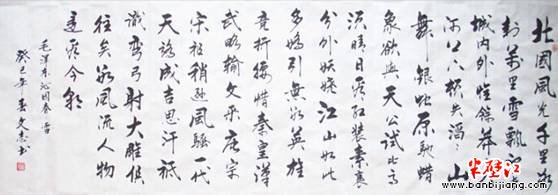 北國風光千里冰
封萬里雪飘望
城内外惟餘莽莽
河上下頓失滔滔山
舞銀蛇原馳蜡
象欲與天公試比高
須晴日看红装素裹
分外妖娆江山如此
多娇引無數英雄
竞折腰惜秦皇漢
武略输文采唐宗
宋祖稍逊風骚一代
天骄成吉思汗祗
識弯弓射大雕俱
往矣数風流人物
還看今朝
毛泽东沁园春雪
癸巳年李文志书
半壁江
www.banbijiang.com